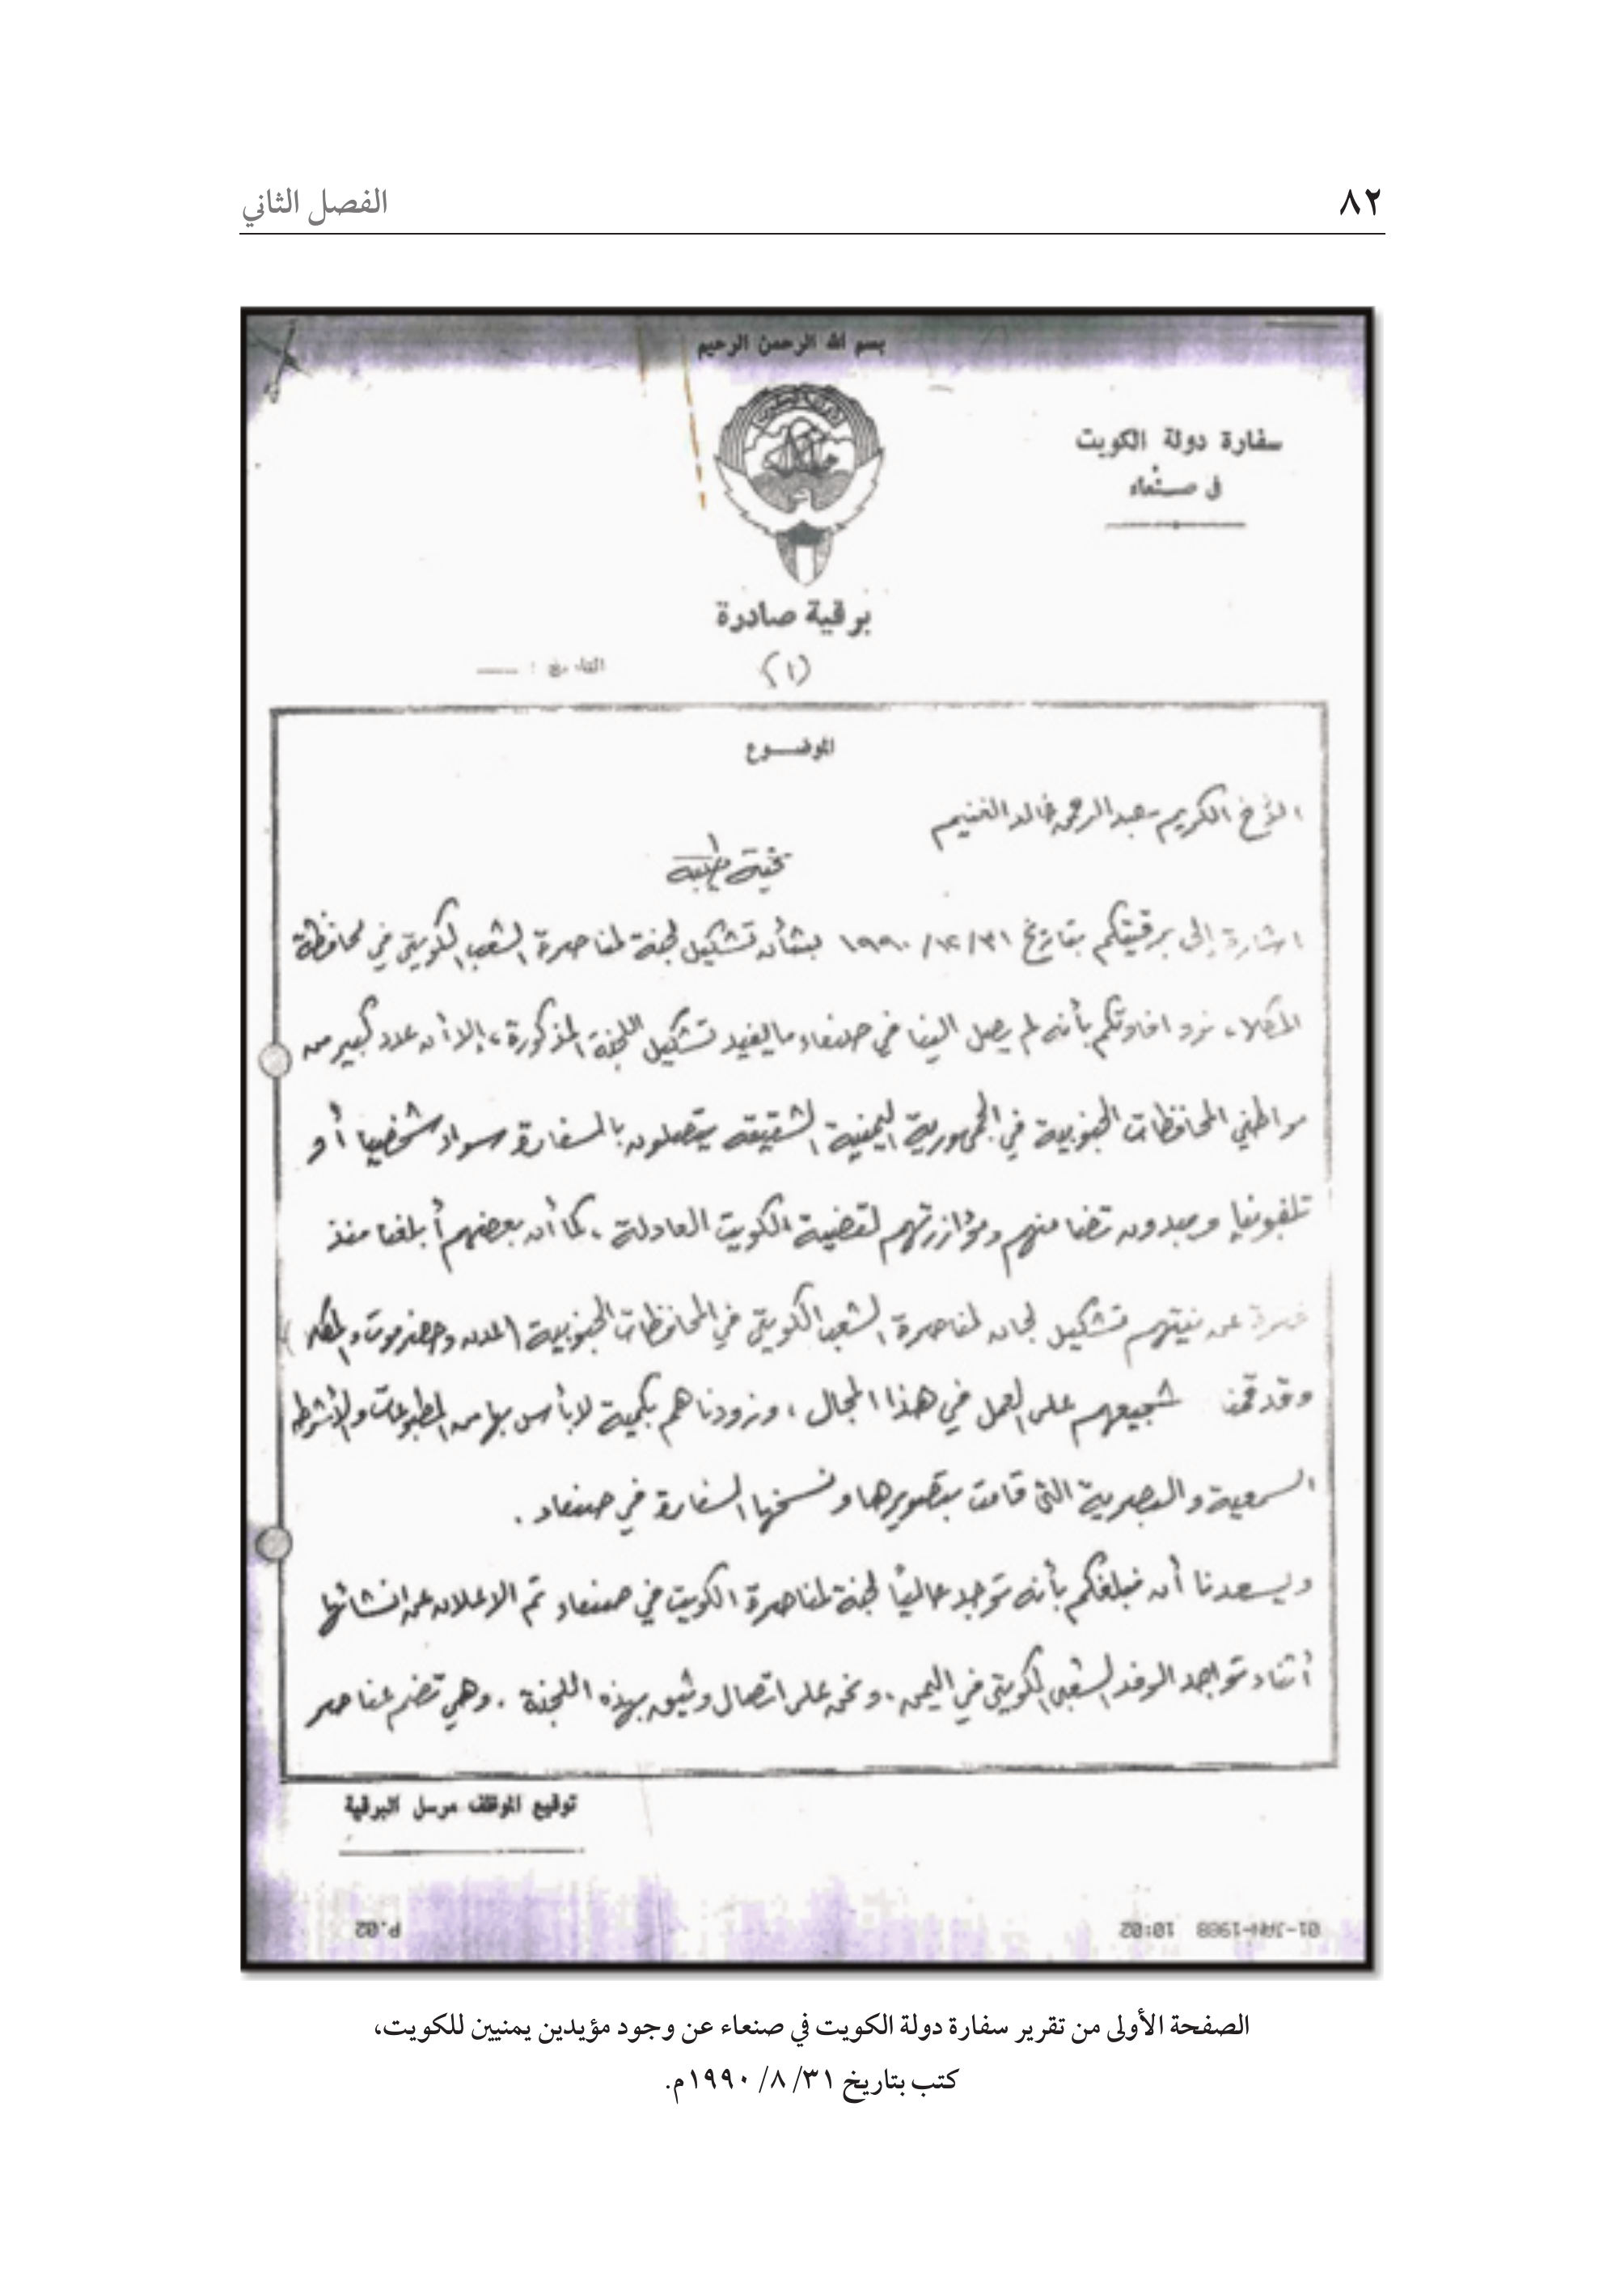 ٨٢
الفصل الثاني
بسم الله الرحمن الرحيم
سفارة دولة الكويت
في صنعاء
برقية صادرة
(١)
التاريخ :
الموضوع
الأخ الكريم عبدالرحمن خالد الغنيم
تحية طيبة
اشارة إلى برقيتكم بتاريخ بشأن تشكيل لجنة لمناصرة الشعب الكويتي في محافظة
المكلا، نود افادتكم بأنه لم يصل الينا في صنعاء ما يفيد تشكيل اللجنة المذكورة، إلا أن عدد كبير من
مواطني المحافظات الجنوبية في الجمهورية اليمنية الشقيقة يتصلون بالسفارة سواء شخصيا أو
تلفونيا ويبدون تضامنهم ومؤازرتهم لقضية الكويت العادلة، كما أن بعضهم أبلغنا منذ
فترة عن نيتهم تشكيل لجان لمناصرة الشعب الكويتي في المحافظات الجنوبية (عدن وحضرموت والمكلا)
وقد قمنا تشجيعهم على العمل في هذا المجال، وزودناهم بكمية لا بأس بها من المطبوعات والأشرطة
السمعية والبصرية التي قامت بتصويرها ونسخها السفارة في صنعاء.
ويسعدنا أن نبلغكم بأنه توجد حالياً لجنة لمناصرة الكويت في صنعاء تم الاعلان عن انشائها
أثناء تواجد الوفد الشعبي الكويتي في اليمن، ونحن على اتصال وثيق بهذه اللجنة. وهي تضم عناصر
توقيع الموظف مرسل البرقية
01-JAN-1988 10:02
P.02
الصفحة الأولى من تقرير سفارة دولة الكويت في صنعاء عن وجود مؤيدين يمنيين للكويت،
كتب بتاريخ ٣١/ ٨/ ١٩٩٠م.